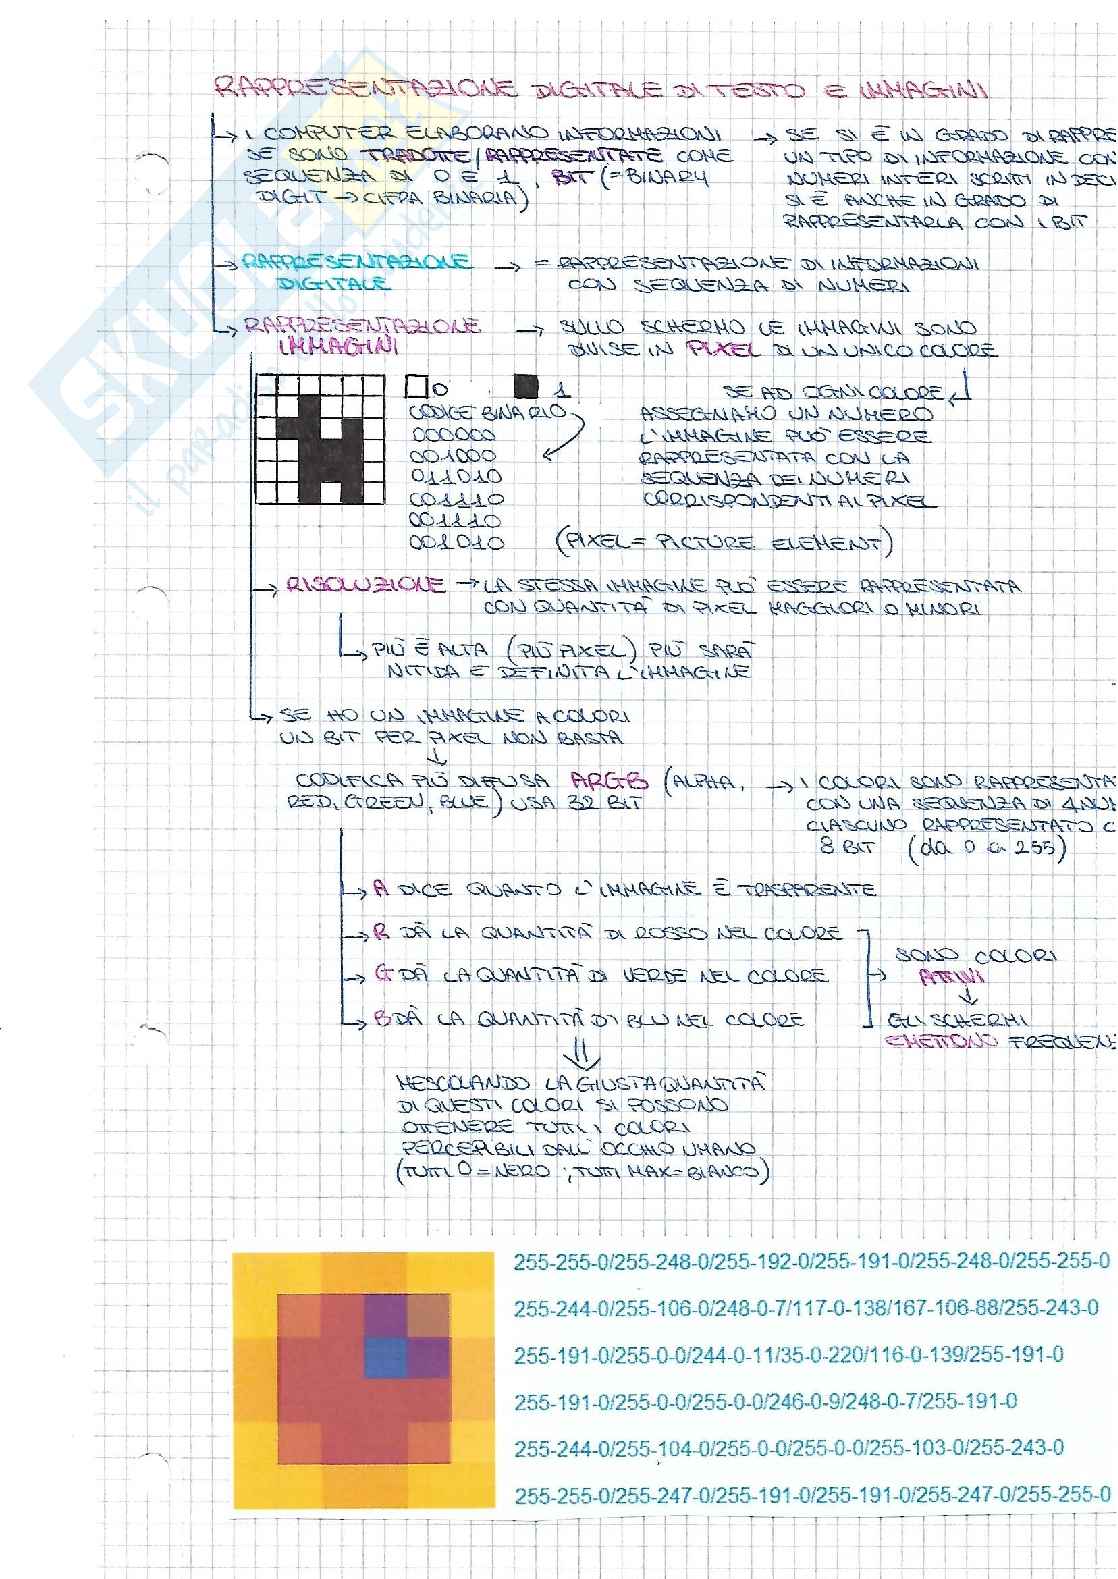 RAPPRESENTAZIONE DIGITALE DI TESTO E IMMAGINI
I COMPUTER ELABORANO INFORMAZIONI
SE SONO TRADOTTE/RAPPRESENTATE COME
SEQUENZA DI 0 E 1, BIT (=BINARY
DIGIT → CIFRA BINARIA)
SE SI È IN GRADO DI RAPPRE
UN TIPO DI INFORMAZIONE CON
NUMERI INTERI SCRITTI IN DECI
SI È ANCHE IN GRADO DI
RAPPRESENTARLA CON I BIT
RAPPRESENTAZIONE
DIGITALE
= RAPPRESENTAZIONE DI INFORMAZIONI
CON SEQUENZA DI NUMERI
RAPPRESENTAZIONE
IMMAGINI
SULLO SCHERMO LE IMMAGINI SONO
DIVISE IN PIXEL DI UN UNICO COLORE
0 1
CODICE BINARIO
000000
001000
011010
001110
001110
001010
SE AD OGNI COLORE
ASSEGNAMO UN NUMERO
L'IMMAGINE PUÒ ESSERE
RAPPRESENTATA CON LA
SEQUENZA DEI NUMERI
CORRISPONDENTI AI PIXEL
(PIXEL = PICTURE ELEMENT)
RISOLUZIONE → LA STESSA IMMAGINE PUÒ ESSERE RAPPRESENTATA
CON QUANTITÀ DI PIXEL MAGGIORI O MINORI
PIÙ È ALTA (PIÙ PIXEL) PIÙ SARÀ
NITIDA E DEFINITA L'IMMAGINE
SE HO UN IMMAGINE A COLORI
UN BIT PER PIXEL NON BASTA
CODIFICA PIÙ DIFUSA ARGB (ALPHA,
RED, GREEN, BLUE) USA 32 BIT
I COLORI SONO RAPPRESENTA
CON UNA SEQUENZA DI 4 NUM
CIASCUNO RAPPRESENTATO C
8 BIT (da 0 a 255)
A DICE QUANTO L'IMMAGINE È TRASPARENTE
R DÀ LA QUANTITÀ DI ROSSO NEL COLORE
G DÀ LA QUANTITÀ DI VERDE NEL COLORE
B DÀ LA QUANTITÀ DI BLU NEL COLORE
SONO COLORI
ATTIVI
GLI SCHERMI
EMETTONO FREQUEN
MESCOLANDO LA GIUSTA QUANTITÀ
DI QUESTI COLORI SI POSSONO
OTTENERE TUTTI I COLORI
PERCEPIBILI DALL'OCCHIO UMANO
(TUTTI 0 = NERO ; TUTTI MAX = BIANCO)
255-255-0/255-248-0/255-192-0/255-191-0/255-248-0/255-255-0
255-244-0/255-106-0/248-0-7/117-0-138/167-106-88/255-243-0
255-191-0/255-0-0/244-0-11/35-0-220/116-0-139/255-191-0
255-191-0/255-0-0/255-0-0/246-0-9/248-0-7/255-191-0
255-244-0/255-104-0/255-0-0/255-0-0/255-103-0/255-243-0
255-255-0/255-247-0/255-191-0/255-191-0/255-247-0/255-255-0